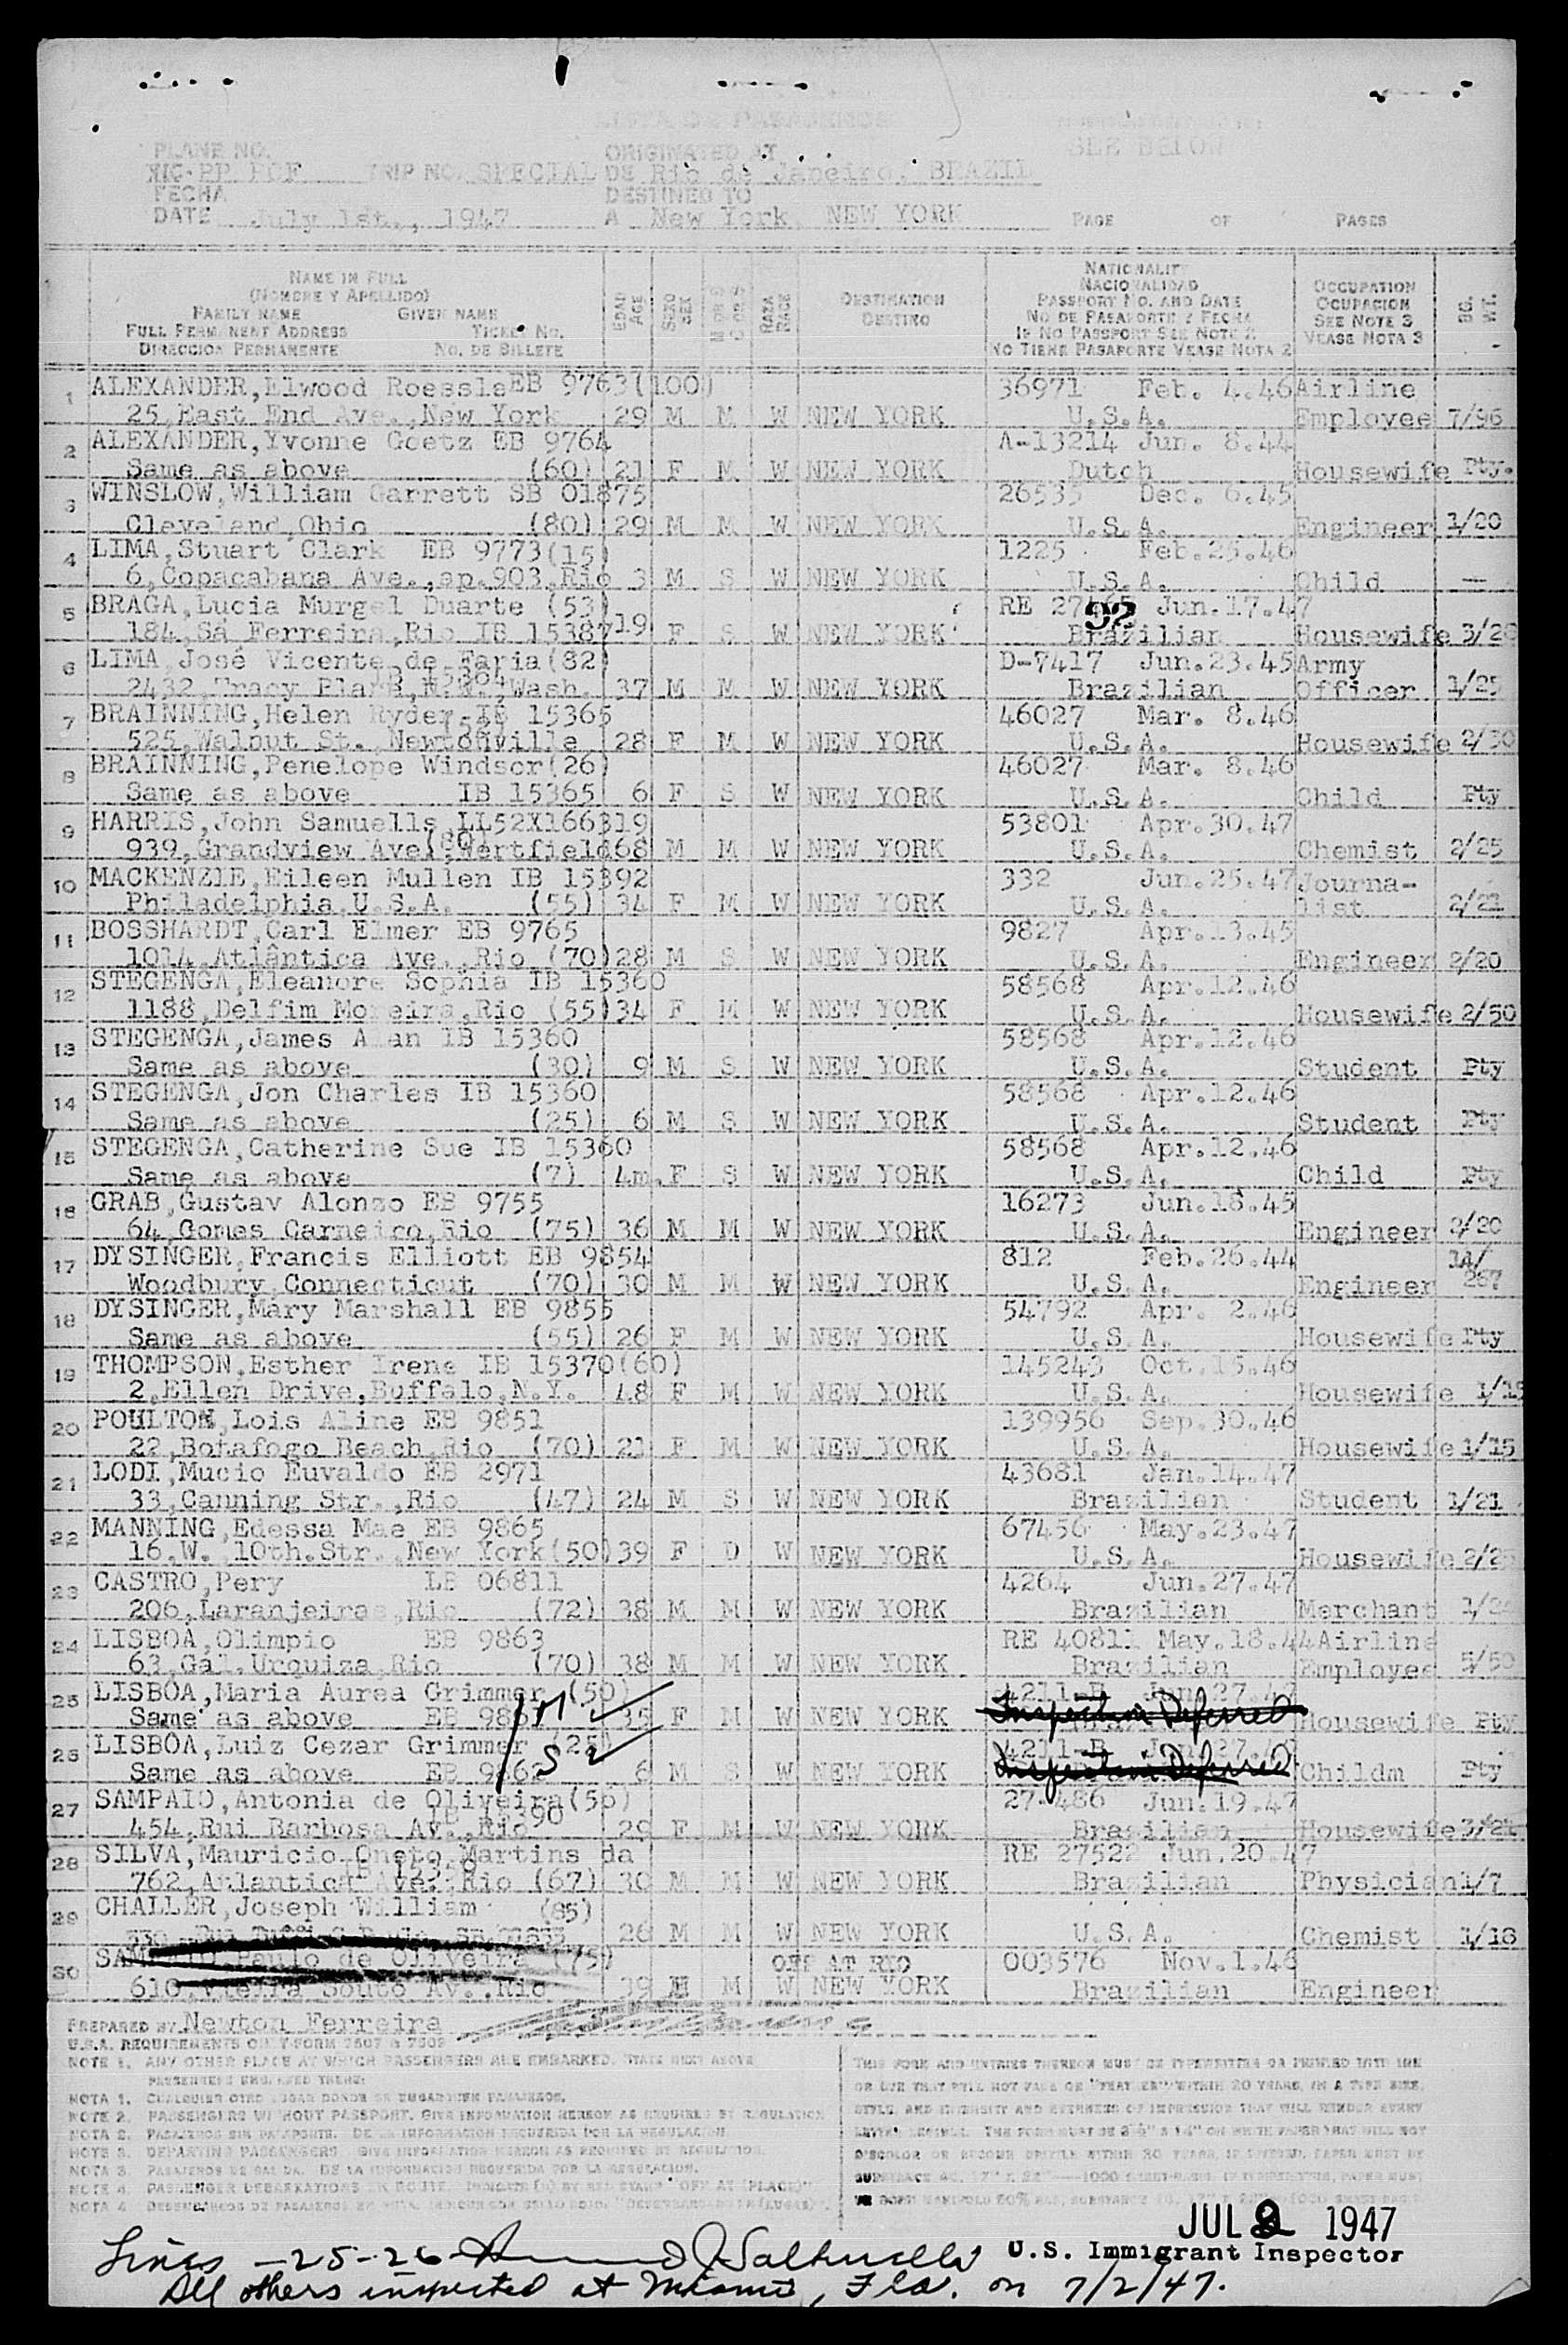 LISTA DE PASAJEROS
SEE BELOW
PLANE NO. ORIGINATED AT
PP PCF TRIP NO. SPECIAL DE Rio de Janeiro, BRAZIL
FECHA DESTINED TO
DATE July 1st., 1947 A New York, NEW YORK PAGE OF PAGES
NAME IN FULL
(NOMBRE Y APELLIDO)
FAMILY NAME GIVEN NAME
FULL PERMANENT ADDRESS TICKET NO.
DIRECCION PERMANENTE NO. DE BILLETE
EDAD AGE
SEXO SEX
RAZA RACE
DESTINATION
DESTINO
NATIONALITY
NACIONALIDAD
PASSPORT NO. AND DATE
NO DE PASAPORTE Y FECHA
IF NO PASSPORT SEE NOTE 2
NO TIENE PASAPORTE VEASE NOTA 2
OCCUPATION
OCUPACION
SEE NOTE 3
VEASE NOTA 3
BG. WT.
1 ALEXANDER,Elwood Roessle EB 9763(100) 36971 Feb. 4.46 Airline
25,East End Ave.,New York 29 M M W NEW YORK U.S.A. Employee 7/96
2 ALEXANDER,Yvonne Goetz EB 9764 A-13214 Jun. 8.44
Same as above (60) 21 F M W NEW YORK Dutch Housewife Pty.
3 WINSLOW,William Garrett SB 01875 26535 Dec. 6.45
Cleveland,Ohio (80) 29 M M W NEW YORK U.S.A. Engineer 1/20
4 LIMA,Stuart Clark EB 9773(15) 1225 Feb.25.46
6,Copacabana Ave.,ap.903,Rio 3 M S W NEW YORK U.S.A. Child —
5 BRAGA,Lucia Murgel Duarte (53) RE Jun.17.47
92
184,Sá Ferreira,Rio IB 15387 19 F S W NEW YORK Brazilian Housewife 3/28
6 LIMA,José Vicente de Faria(82) D-7417 Jun.23.45 Army
2432,Tracy Place,N.W.,Wash. 37 M M W NEW YORK Brazilian Officer 1/25
7 BRAINNING,Helen Ryder IB 15365 46027 Mar. 8.46
525,Walnut St.,Newtonville 28 F M W NEW YORK U.S.A. Housewife 2/30
8 BRAINNING,Penelope Windsor(26) 46027 Mar. 8.46
Same as above IB 15365 6 F S W NEW YORK U.S.A. Child Pty
9 HARRIS,John Samuells LL52X166319 53801 Apr.30.47
939,Grandview Ave.,Wertfield 68 M M W NEW YORK U.S.A. Chemist 2/25
10 MACKENZIE,Eileen Mullen IB 15392 332 Jun.25.47 Journa-
Philadelphia,U.S.A. (55) 34 F M W NEW YORK U.S.A. list 2/21
11 BOSSHARDT,Carl Elmer EB 9765 9827 Apr.13.45
1014,Atlântica Ave.,Rio (70) 28 M S W NEW YORK U.S.A. Engineer 2/20
12 STEGENGA,Eleanore Sophia IB 15360 58568 Apr.12.46
1188,Delfim Moreira,Rio (55) 34 F M W NEW YORK U.S.A. Housewife 2/50
13 STEGENGA,James Alan IB 15360 58568 Apr.12.46
Same as above (30) 9 M S W NEW YORK U.S.A. Student Pty
14 STEGENGA,Jon Charles IB 15360 58568 Apr.12.46
Same as above (25) 6 M S W NEW YORK U.S.A. Student Pty
15 STEGENGA,Catherine Sue IB 15360 58568 Apr.12.46
Same as above (7) 4m. F S W NEW YORK U.S.A. Child Pty
16 GRAB,Gustav Alonzo EB 9755 16273 Jun.18.45
64,Gomes Carneiro,Rio (75) 36 M M W NEW YORK U.S.A. Engineer 2/20
17 DYSINGER,Francis Elliott EB 9854 812 Feb.26.44 14/
Woodbury,Connecticut (70) 30 M M W NEW YORK U.S.A. Engineer 267
18 DYSINGER,Mary Marshall EB 9855 54792 Apr. 2.46
Same as above (55) 26 F M W NEW YORK U.S.A. Housewife Pty
19 THOMPSON,Esther Irene IB 15370(60) 145243 Oct.15.46
2,Ellen Drive,Buffalo,N.Y. 48 F M W NEW YORK U.S.A. Housewife 1/15
20 POULTON,Lois Aline EB 9851 139956 Sep.30.46
22,Botafogo Beach,Rio (70) 21 F M W NEW YORK U.S.A. Housewife 1/15
21 LODI,Mucio Euvaldo EB 2971 43681 Jan.14.47
33,Canning Str.,Rio (47) 24 M S W NEW YORK Brazilian Student 1/21
22 MANNING,Edessa Mae EB 9865 67456 May.23.47
16,W. 10th.Str.,New York(50) 39 F D W NEW YORK U.S.A. Housewife 2/25
23 CASTRO,Pery LB 06811 4264 Jun.27.47
206,Laranjeiras,Rio (72) 38 M M W NEW YORK Brazilian Merchant
24 LISBOA,Olimpio EB 9863 RE 40811 May.18.44 Airline
63,Gál.Urquiza,Rio (70) 38 M M W NEW YORK Brazilian Employee 5/50
25 LISBÔA,Maria Aurea Grimmer (50) 4211-B Jun.27.47
Same as above EB 35 F M W NEW YORK Inspection Deferred Housewife Pty
26 LISBÔA,Luiz Cezar Grimmer (25) 4211-B Jun.27.47
Same as above EB 9862 6 M S W NEW YORK Inspection Deferred Childm Pty
27 SAMPAIO,Antonia de Oliveira(56) 27486 Jun.19.47
454,Rui Barbosa Av.,Rio IB 15390 29 F M W NEW YORK Brazilian Housewife 3/21
28 SILVA,Mauricio Oneto Martins da RE 27522 Jun.20.47
762,Atlantica Ave.,Rio (67) 30 M M W NEW YORK Brazilian Physician 1/7
29 CHALLER,Joseph William (85)
26 M M W NEW YORK U.S.A. Chemist 1/18
30 Paulo de Oliveira (75) OFF AT RIO 003576 Nov.1.46
610,Vieira Souto Av.,Rio 39 M M W NEW YORK Brazilian Engineer
PREPARED BY Newton Ferreira
U.S.A. REQUIREMENTS ON T-FORM 7507 & 7509
NOTE 1. ANY OTHER PLACE AT WHICH PASSENGERS ARE EMBARKED. STATE NEXT ABOVE
PASSENGERS EMBARKED THERE.
NOTA 1. CUALQUIER OTRO LUGAR DONDE SE EMBARQUEN PASAJEROS.
NOTE 2. PASSENGERS WITHOUT PASSPORT. GIVE INFORMATION HEREON AS REQUIRED BY REGULATION
NOTA 2. PASAJEROS SIN PASAPORTE. DE LA INFORMACION REQUERIDA POR LA REGULACION
NOTE 3. DEPARTING PASSENGERS. GIVE INFORMATION HEREON AS REQUIRED BY REGULATION.
NOTA 3. PASAJEROS DE SALIDA. DE LA INFORMACION REQUERIDA POR LA REGULACION.
NOTE 4. PASSENGER DEBARKATIONS EN ROUTE. INDICATE BY RED STAMP "OFF AT (PLACE)"
NOTA 4
THIS FORM AND ENTRIES THEREON MUST BE TYPEWRITTEN OR PRINTED WITH INK
OR DYE THAT WILL NOT FADE OR "FEATHER" WITHIN 20 YEARS, IN A TYPE SIZE,
STYLE, AND INTENSITY AND EVENNESS OF IMPRESSION THAT WILL RENDER EVERY
LETTER LEGIBLE. THE FORM MUST BE 8½" X 14" ON WHITE PAPER THAT WILL NOT
DISCOLOR OR BECOME BRITTLE WITHIN 20 YEARS.
JUL 2 1947
U.S. Immigrant Inspector
Lines - 25-26
All others inspected at Miami, Fla. on 7/2/47.